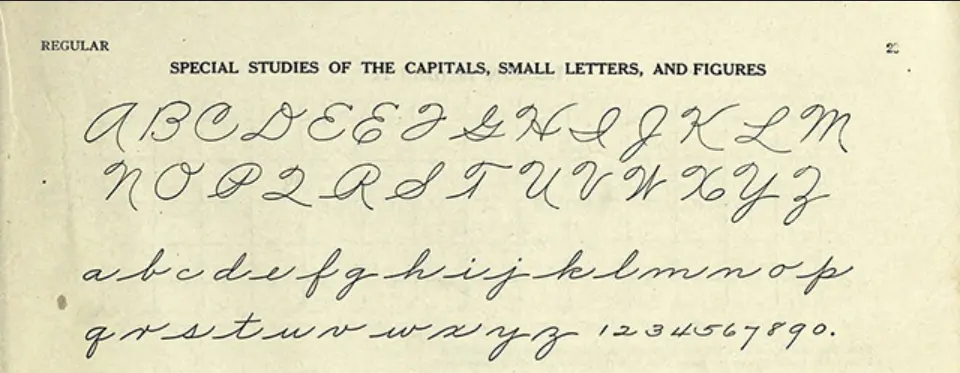 REGULAR
SPECIAL STUDIES OF THE CAPITALS, SMALL LETTERS, AND FIGURES
A B C D E E F G H I J K L M
N O P Q R S T U V W X Y Z
a b c d e f g h i j k l m n o p
q r s t u v w x y z 1 2 3 4 5 6 7 8 9 0.